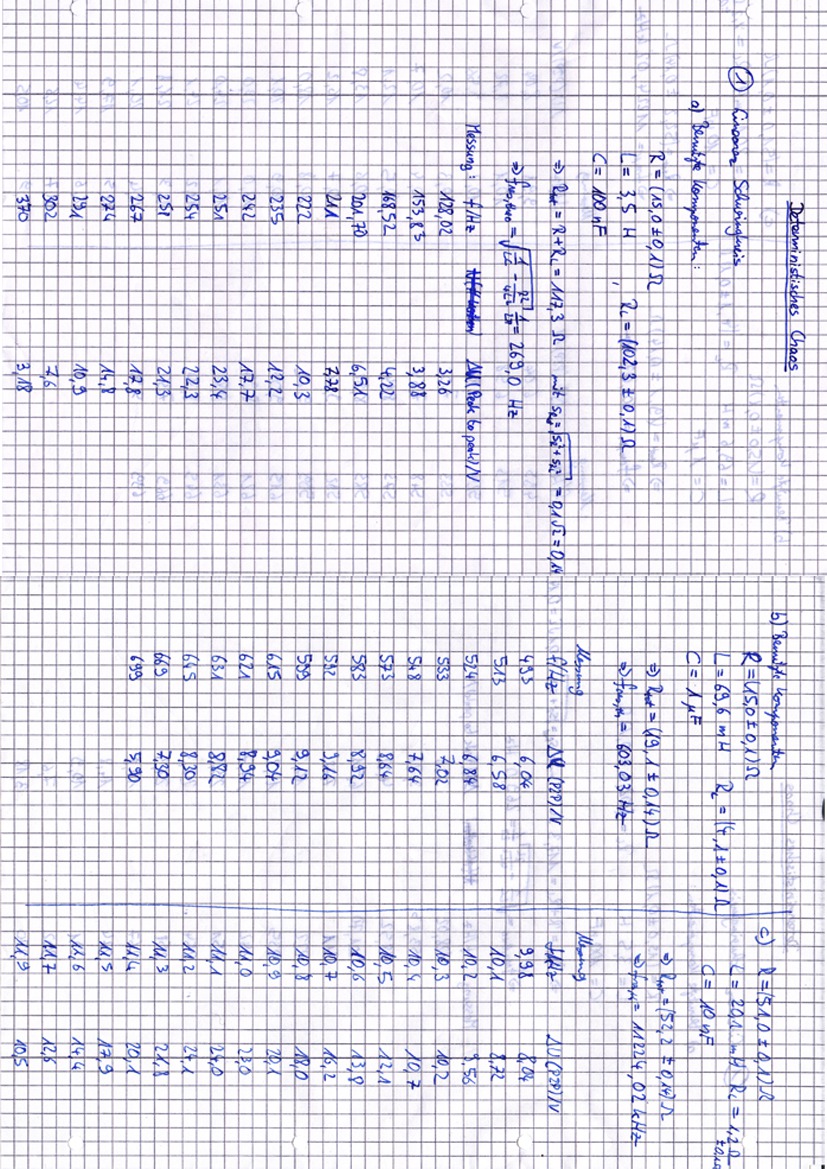 Deterministisches Chaos
① Linearer Schwingkreis
a) Benutzte Komponenten:
R = (15,0 ± 0,1) Ω
L = 3,5 H , R_L = (102,3 ± 0,1) Ω
C = 100 nF
⇒ R_tot = R + R_L = 117,3 Ω mit = 0,1√2 = 0,14
⇒ f_res,theo = √(1/LC - R²/4L²) 1/2π = 269,0 Hz
Messung: f/Hz ΔU (Peak to peak)/V
128,02 3,26
153,83 3,88
168,52 4,22
201,70 6,51
211 7,78
222 10,3
235 12,2
242 17,7
251 23,4
254 22,3
251 21,3
267 17,8
274 14,8
291 10,9
302 7,6
370 3,18
b) Benutzte Komponenten
R = (15,0 ± 0,1) Ω
L = 69,6 mH R_L = (4,1 ± 0,1) Ω
C = 1 μF
⇒ R_tot = (19,1 ± 0,14) Ω
⇒ f_res,th = 603,03 Hz
Messung
f/Hz ΔU (P2P)/V
493 6,04
513 6,58
524 6,84
533 7,02
548 7,64
573 8,64
583 8,92
592 9,16
599 9,12
615 9,04
621 8,94
631 8,82
645 8,30
669 7,30
699 5,90
c) R = (51,0 ± 0,1) Ω
L = 20,1 mH R_L = 1,2 Ω
C = 10 nF
⇒ R_tot = (52,2 ± 0,14) Ω
⇒ f_res,th = 11224,02 kHz
Messung
f/kHz ΔU (P2P)/V
9,98 8,04
10,1 8,72
10,2 9,56
10,3 10,2
10,4 10,7
10,5 12,1
10,6 13,8
10,7 16,2
10,8 18,0
10,9 20,1
11,0 23,0
11,1 24,0
11,2 24,1
11,3 21,8
11,4 20,1
11,5 17,9
11,6 14,4
11,7 12,6
11,9 10,5